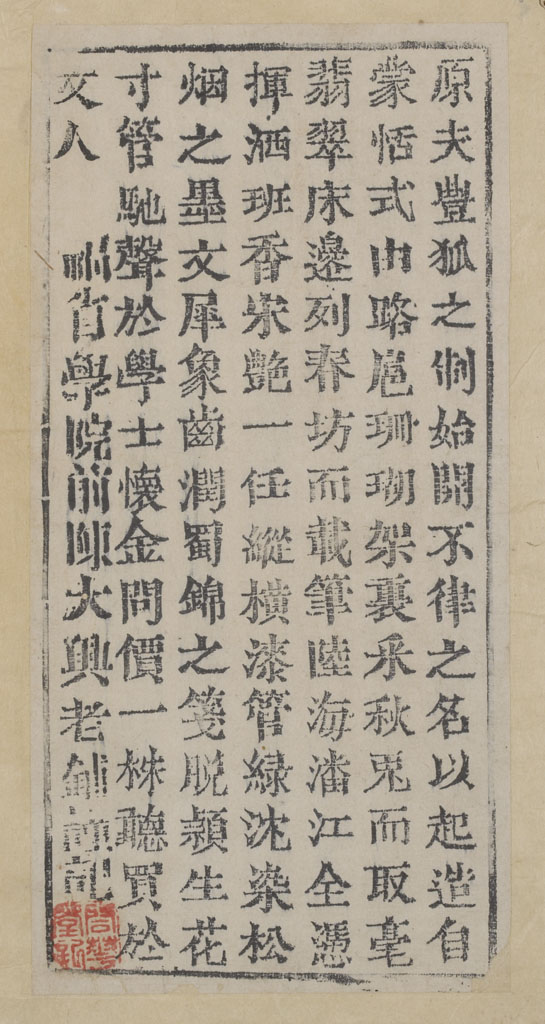 原夫豐狐之制始開不律之名以起造自
蒙恬式由路扈珊瑚架裏采秋兎而取毫
翡翠床邊列春坊而載筆陸海潘江全憑
揮洒班香宋艷一任縱橫漆管綠沈染松
烟之墨文犀象齒潤蜀錦之箋脫穎生花
寸管馳聲於學士懷金問價一株聽買於
文人
省學院前陳大興老鋪記